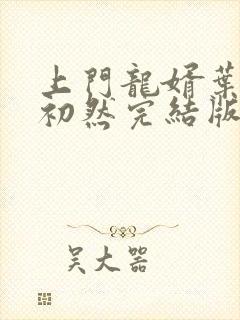 上門龍婿葉
初然完結版
吴大器